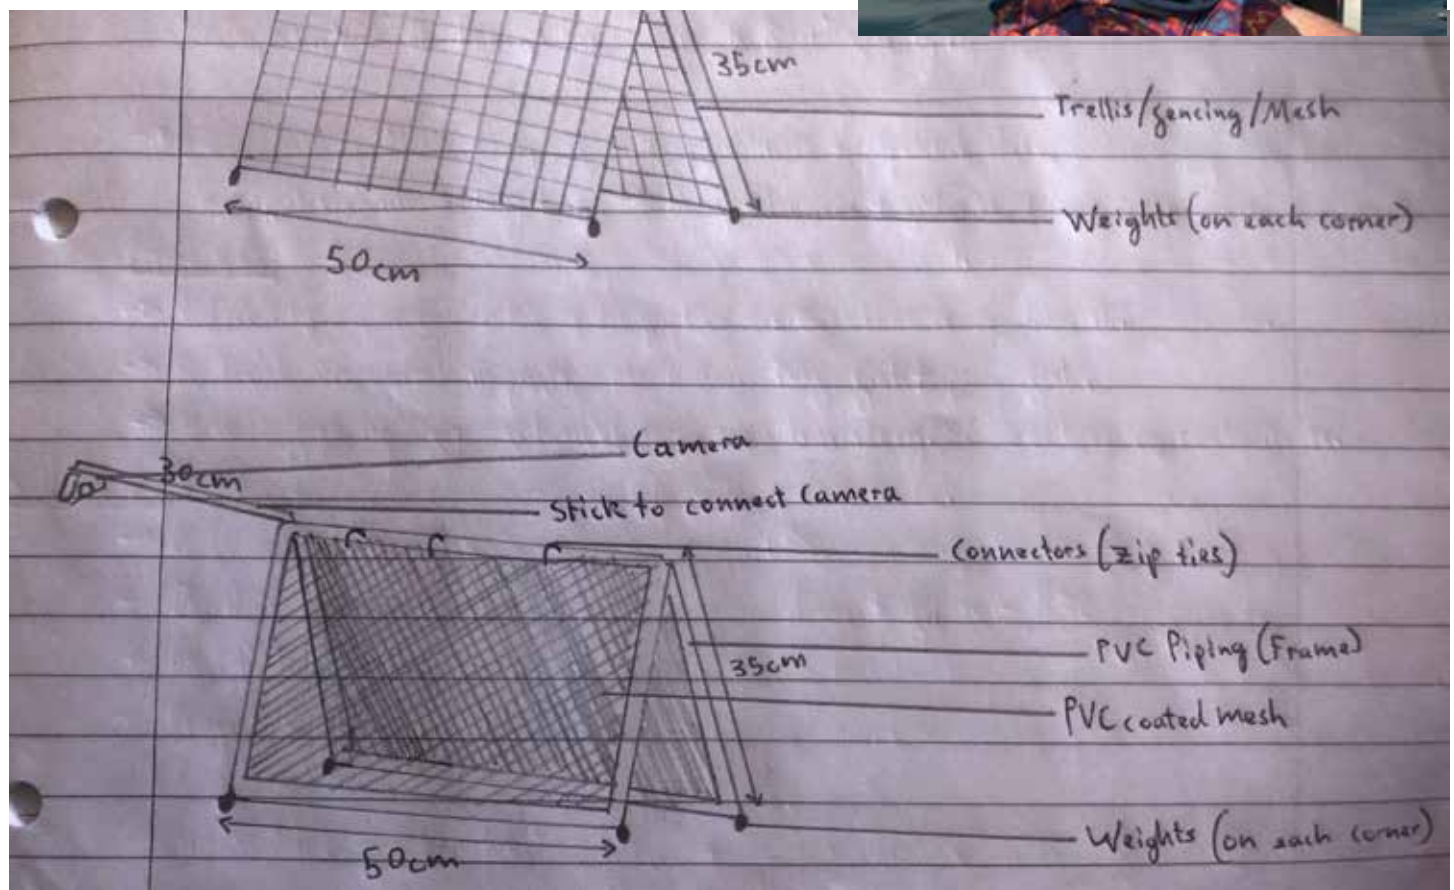 35cm
Trellis/fencing/Mesh
Weights (on each corner)
50cm
Camera
30cm
Stick to connect Camera
Connectors (zip ties)
PVC Piping (Frame)
35cm
PVC coated mesh
Weights (on each corner)
50cm